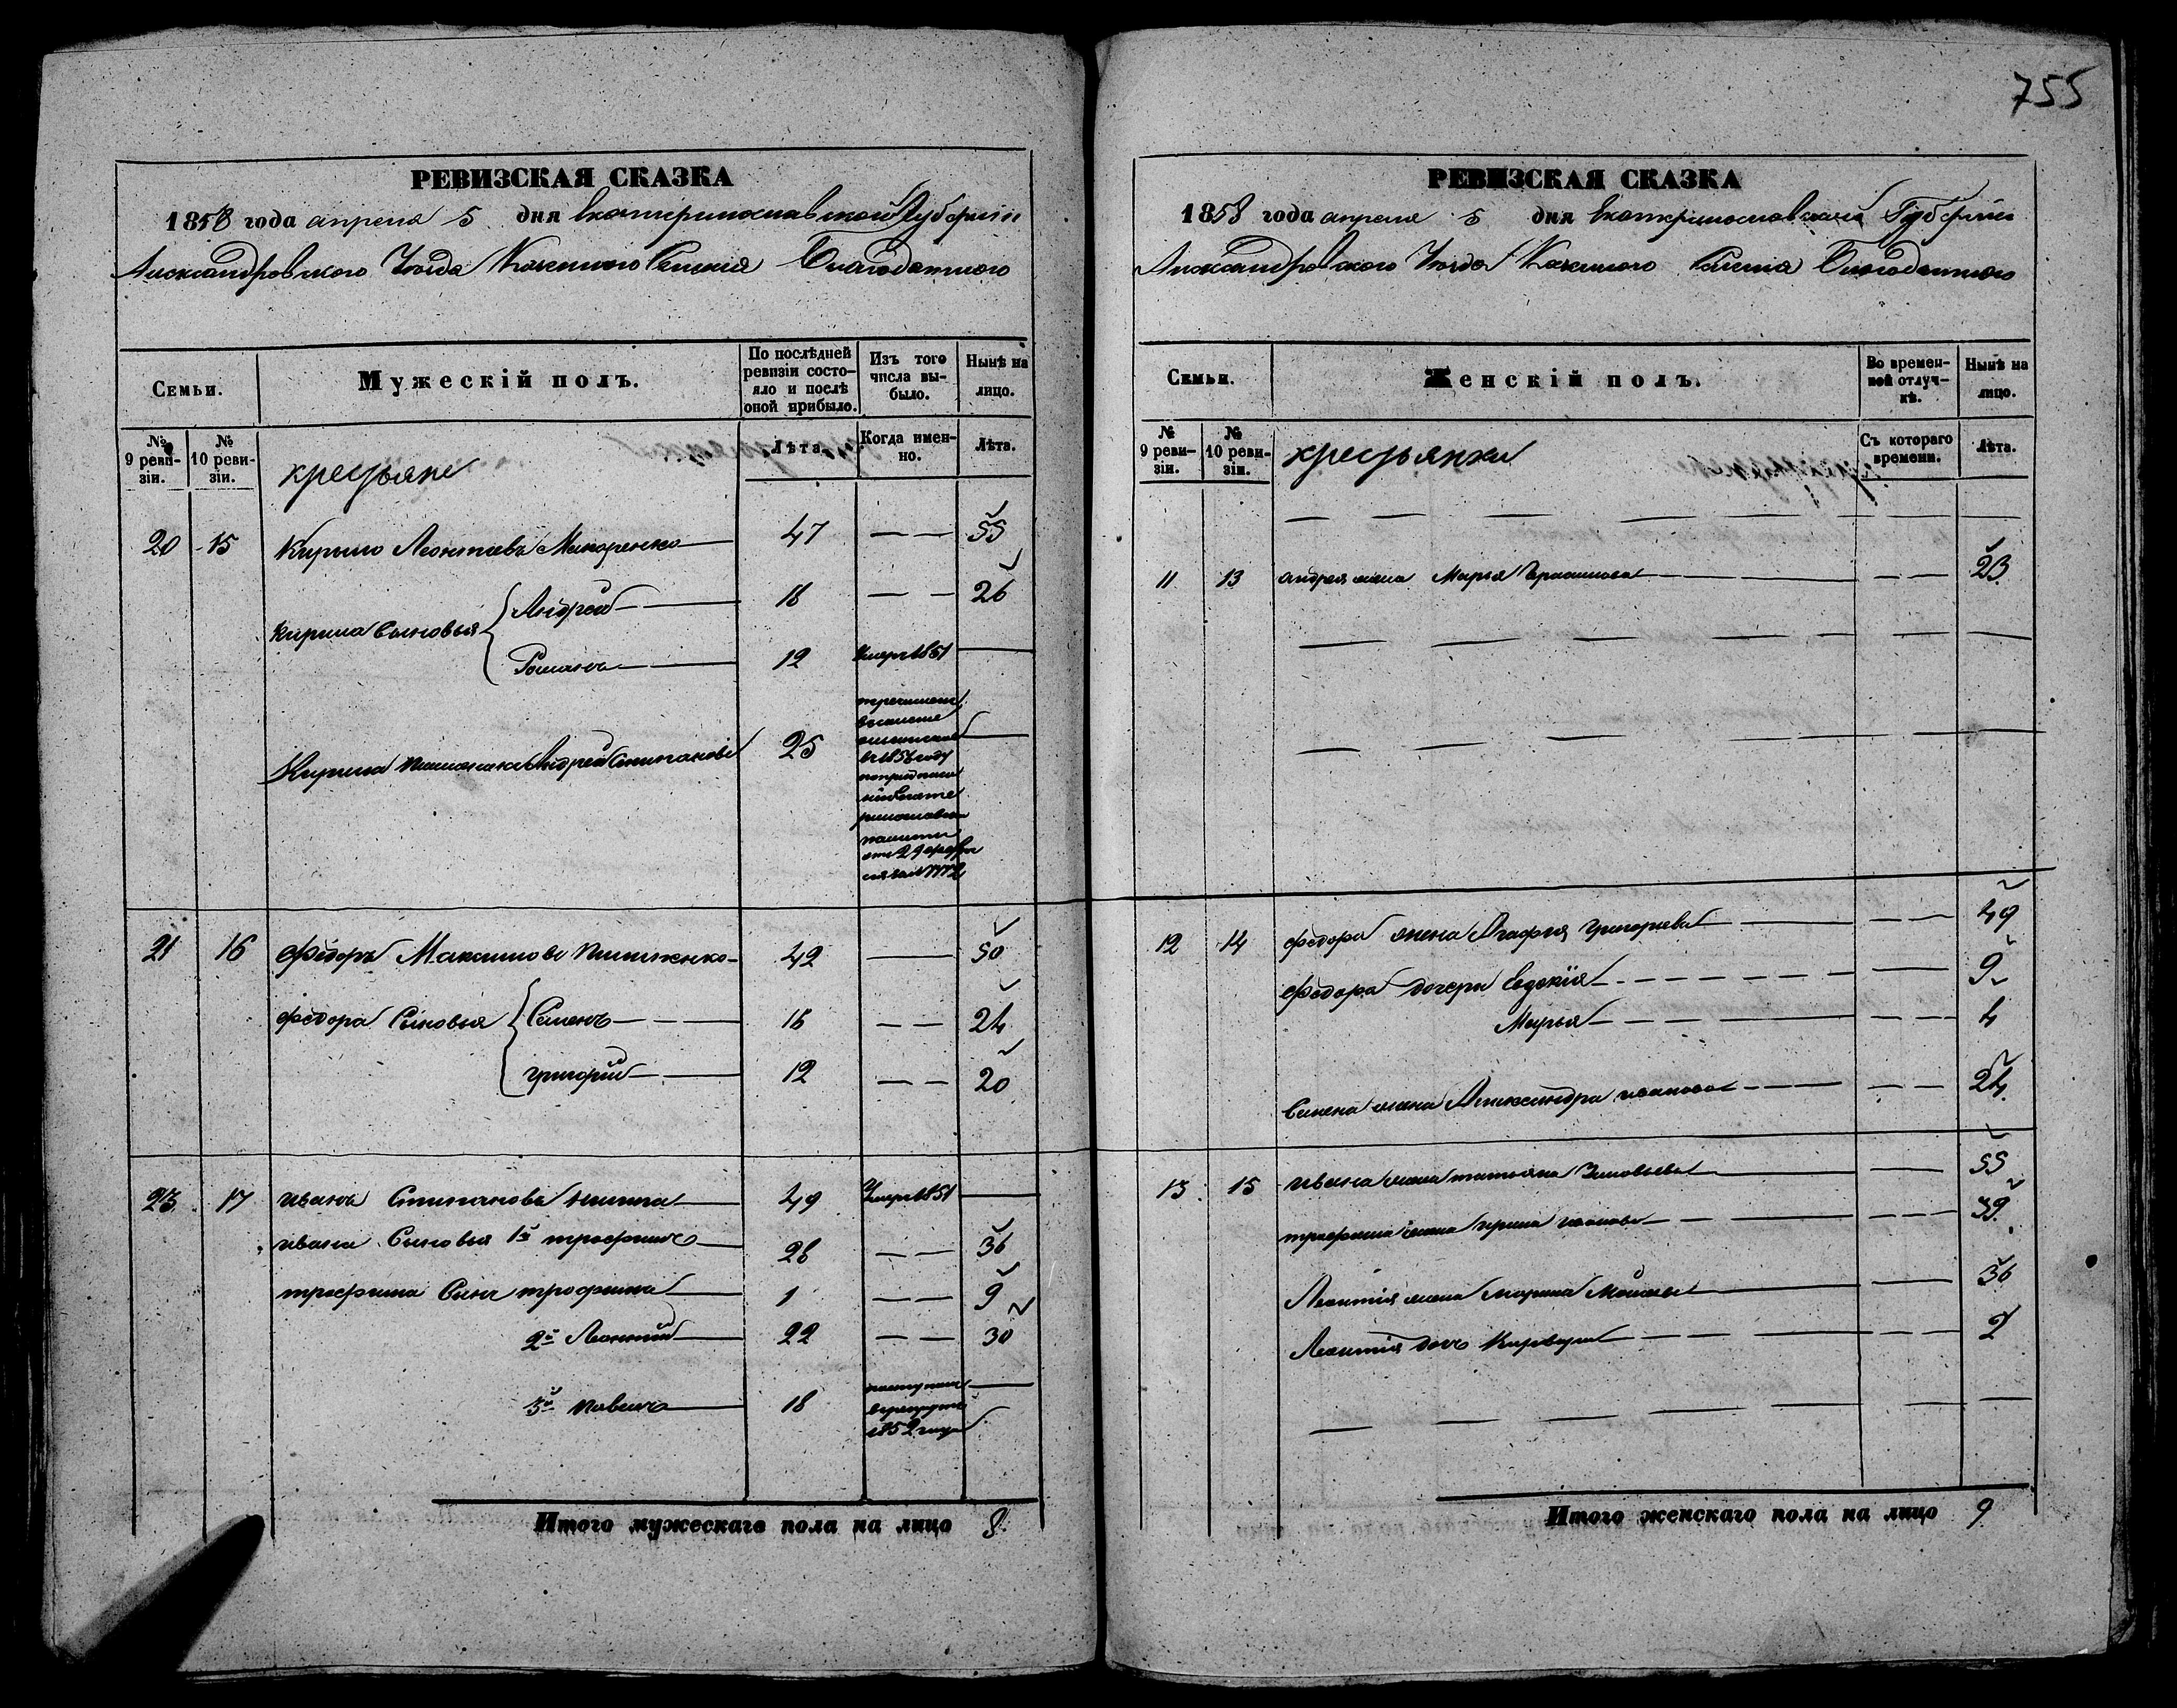 755
РЕВИЗСКАЯ СКАЗКА
1858 года апреля 5 дня Екатеринославской Губернии
Александровского Уезда Казенного Селения Благодатного
Семьи.
Мужескій полъ.
По послѣдней ревизіи состояло и послѣ оной прибыло.
Изъ того числа выбыло.
Нынѣ на лицо.
№ 9 ревизіи.
№ 10 ревизіи.
крестьяне
Лѣта.
Когда именно.
Лѣта.
20 15 Кирило Леонтьевъ Макаренко 47 — — 55
Кирила Сыновья Андрей 18 — — 26
Романъ 12 Умеръ 1851 —
Кирила племяникъ Андрей Степановъ 25
21 16 Федоръ Максимовъ 42 — 50
Федора Сыновья Семенъ 16 — — 24
Григорій 12 — — 20
23 17 Иванъ Степановъ 49 Умеръ 1851 —
Ивана Сыновья 1й Трофимъ 28 — — 36
Трофима Сынъ Трофима 1 — — 9
2й Леонтій 22 — — 30
3й Павелъ 18 1852 года —
Итого мужескаго пола на лицо 8.
РЕВИЗСКАЯ СКАЗКА
1858 года апреля 5 дня Екатеринославской Губернии
Александровского Уезда Казенного Селения Благодатного
Семьи.
Женскій полъ.
Во временной отлучкѣ.
Нынѣ на лицо.
№ 9 ревизіи.
№ 10 ревизіи.
крестьянки
Съ котораго времени.
Лѣта.
11 13 Андрея жена Марья Герасимова — — 23
12 14 Федора жена Агафия Григорьева — — 49
Федора дочери Евдокія — 9
Марья — — 4
Семена жена Александра Иванова — — 24
13 15 Ивана жена Татьяна Зиновьева — 55
Трофима жена Ирина Иванова — — 39
Леонтія жена Марина — 36
Леонтія дочь — — 2
Итого женскаго пола на лицо 9